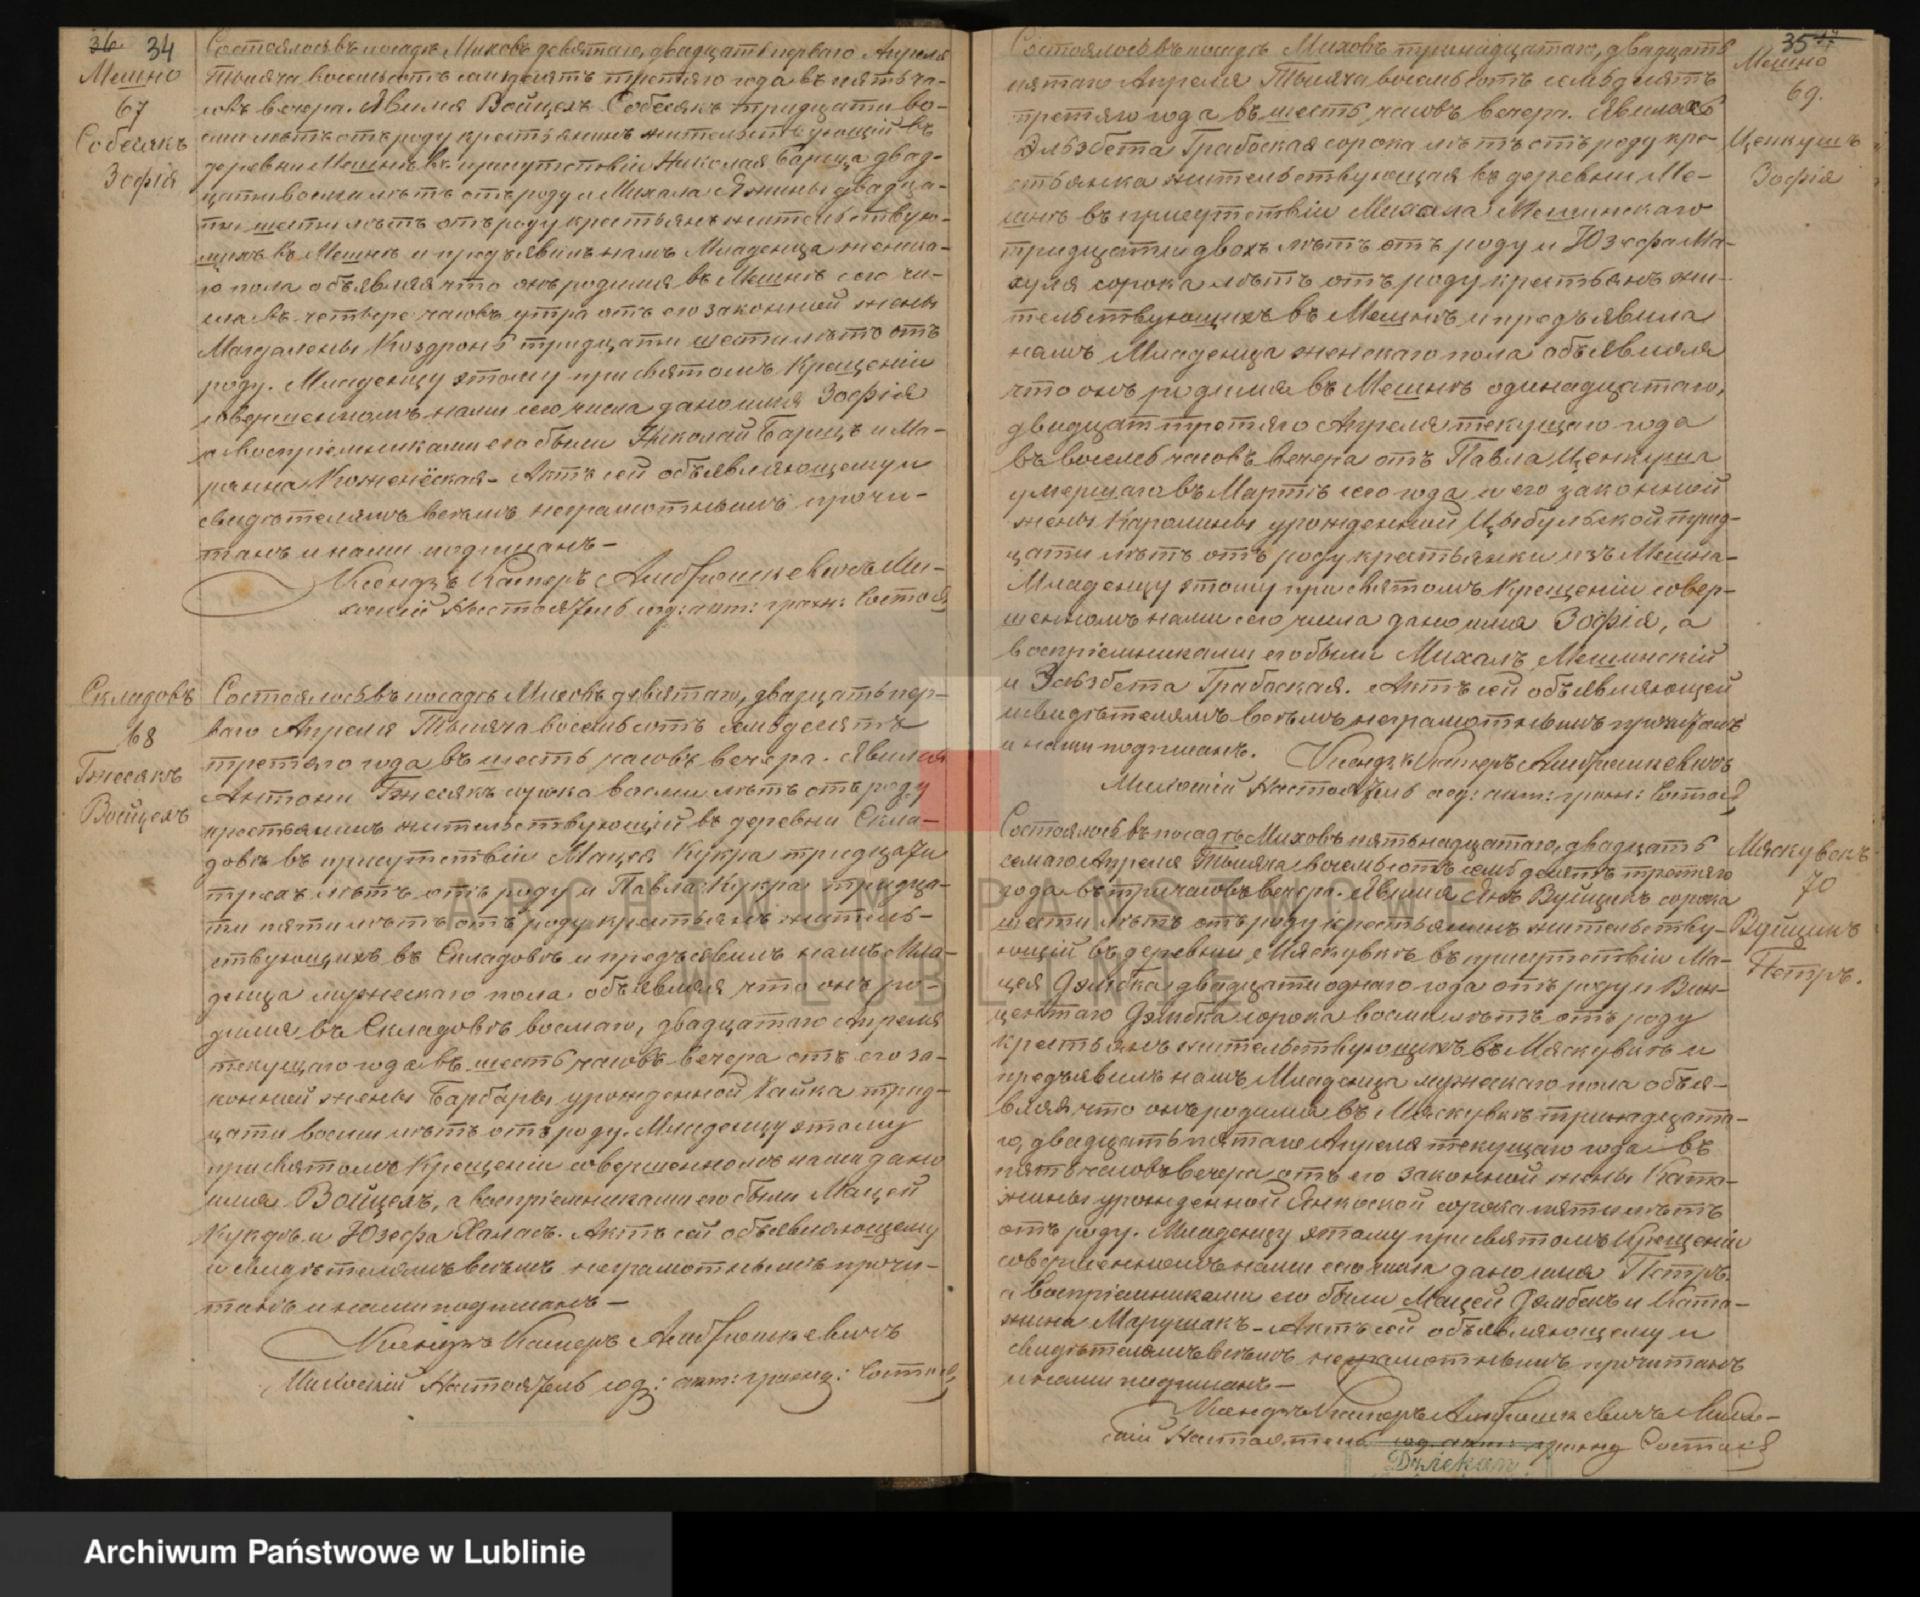 36 34
Мешно
67
Собесякъ
Зофія
Состоялось въ посадѣ Миховѣ девятаго, двадцать перваго Апреля
Тысяча восемьсотъ семьдесятъ третяго года въ пять ча-
совъ вечера. Явился Войцехъ Собесякъ тридцати во-
сми лѣтъ отъ роду крестьянинъ жительствующій въ
деревни Мешнѣ въ присутствіи Николая Барща двад-
цативосми лѣтъ отъ роду и Михала Яжины двадца-
ти шести лѣтъ отъ роду крестьянъ жительствую-
щихъ въ Мешнѣ и предъявилъ намъ Младенца женска-
го пола объявляя что онъ родился въ Мешнѣ сего чи-
сла въ четвере часовъ утра отъ его законной жены
Магдалены Коздронь тридцати шести лѣтъ отъ
роду. Младенцу этому при святомъ Крещеніи
совершенномъ нами сего числа дано имя Зофія
а воспріемниками его были Николай Барщъ и Ма-
ріанна Актъ сей объявляющему и
свидѣтелямъ всѣмъ неграмотнымъ прочи-
танъ и нами подписанъ –
Ксендзъ Касперъ Ми-
ховскій Настоятель сод: акт: гражд: Состоя
Складовъ
68
Гжесякъ
Войцехъ
Состоялось въ посадѣ Миховѣ девятаго, двадцать пер-
ваго Апреля Тысяча восемьсотъ семьдесятъ
третяго года въ шесть часовъ вечера. Явился
Антони Гжесякъ сорока восми лѣтъ отъ роду
крестьянинъ жительствующій въ деревни Скла-
довѣ въ присутствіи Мацея Кукра тридцати
трехъ лѣтъ отъ роду и Павла Кукра тридца-
ти пяти лѣтъ отъ роду крестьянъ житель-
ствующихъ въ Складовѣ и предъявилъ намъ Мла-
денца мужескаго пола объявляя что онъ ро-
дился въ Складовѣ восмаго, двадцатаго Апреля
текущаго года въ шесть часовъ вечера отъ его за-
конной жены Барбары урожденной Чайка трид-
цати восми лѣтъ отъ роду. Младенцу этому
при святомъ Крещеніи совершенномъ нами дано
имя Войцехъ, а воспріемниками его были Мацей
и Юзефа Халасъ. Актъ сей объявляющему
и свидѣтелямъ всѣмъ неграмотнымъ прочи-
танъ и нами подписанъ –
Ксендзъ Касперъ
Миховскій Настоятель сод: акт: гражд: Состоя
35
Мешно
69.
Ценкушъ
Зофія
Состоялось въ посадѣ Миховѣ тринадцатаго, двадцать
пятаго Апреля Тысяча восемьсотъ семьдесятъ
третяго года въ шесть часовъ вечера. Явилась
Эльзбета Грабоская сорока лѣтъ отъ роду кре-
стьянка жительствующая въ деревни Ме-
шнѣ въ присутствіи Михала Мешинскаго
тридцати двохъ лѣтъ отъ роду и Юзефа Ма-
хуля сорока лѣтъ отъ роду крестьянъ жи-
тельствующихъ въ Мешнѣ и предъявила
намъ Младенца женскаго пола объявляя
что онъ родился въ Мешнѣ одинадцатаго,
двадцать третяго Апреля текущаго года
въ восемь часовъ вечера отъ Павла Ценкуша
умершаго въ Мартѣ сего года и его законной
жены Каролины урожденной Цыбульской трид-
цати лѣтъ отъ роду крестьянки изъ Мешна –
Младенцу этому при святомъ Крещеніи совер-
шенномъ нами сего числа дано имя Зофія, а
воспріемниками его были Михалъ Мешинскій
и Эльзбета Грабоская. Актъ сей объявляющей
и свидѣтелямъ всѣмъ неграмотнымъ прочитанъ
и нами подписанъ. Ксендзъ Касперъ
Миховскій Настоятель сод: акт: гражд: Состоя
Мяскувекъ
70
Вуйцикъ
Петръ.
Состоялось въ посадѣ Миховѣ пятьнадцатаго, двадцать
семаго Апреля Тысяча восемьсотъ семьдесятъ третяго
года въ три часовъ вечера. Явился Янъ Вуйцикъ сорока
шести лѣтъ отъ роду крестьянинъ жительству-
ющій въ деревни Мяскувкѣ въ присутствіи Ма-
цея Дэмбка двадцати одного года отъ роду и Вин-
центаго Дэмбка сорока восми лѣтъ отъ роду
крестьянъ жительствующихъ въ Мяскувкѣ и
предъявилъ намъ Младенца мужескаго пола объя-
вляя что онъ родился въ Мяскувкѣ тринадцата-
го, двадцать пятаго Апреля текущаго года въ
пять часовъ вечера отъ его законной жены Ката-
жины урожденной Янкоской сорока пяти лѣтъ
отъ роду. Младенцу этому при святомъ Крещеніи
совершенномъ нами сего числа дано имя Петръ.
а воспріемниками его были Мацей Дэмбекъ и Ката-
жина Марушакъ – Актъ сей объявляющему и
свидѣтелямъ всѣмъ неграмотнымъ прочитанъ
и нами подписанъ –
Ксендзъ Касперъ Михов-
скій Настоятель сод. акт: гражд Состоя
Dziekan
ARCHIWUM PAŃSTWOWE
W LUBLINIE
Archiwum Państwowe w Lublinie